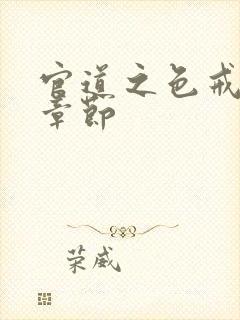 官道之色戒
章节
荣威